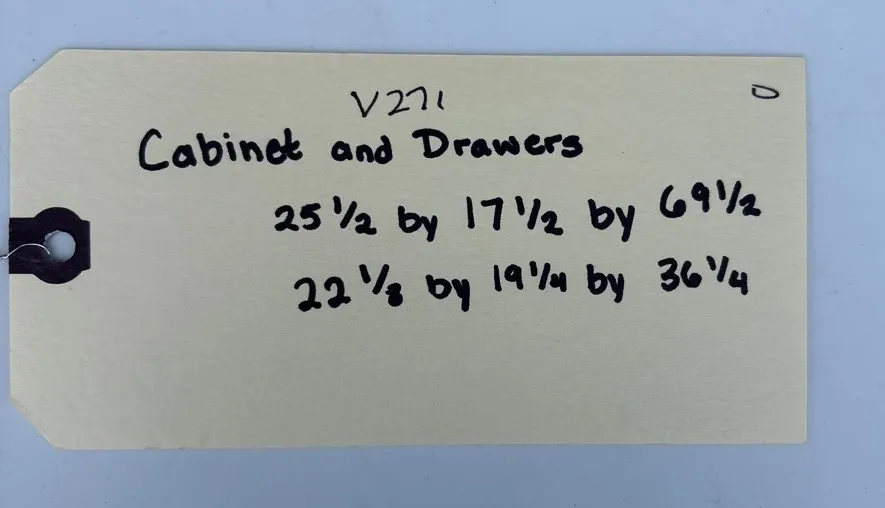 V271
D
Cabinet and Drawers
25 1/2 by 17 1/2 by 69 1/2
22 1/8 by 19 1/4 by 36 1/4